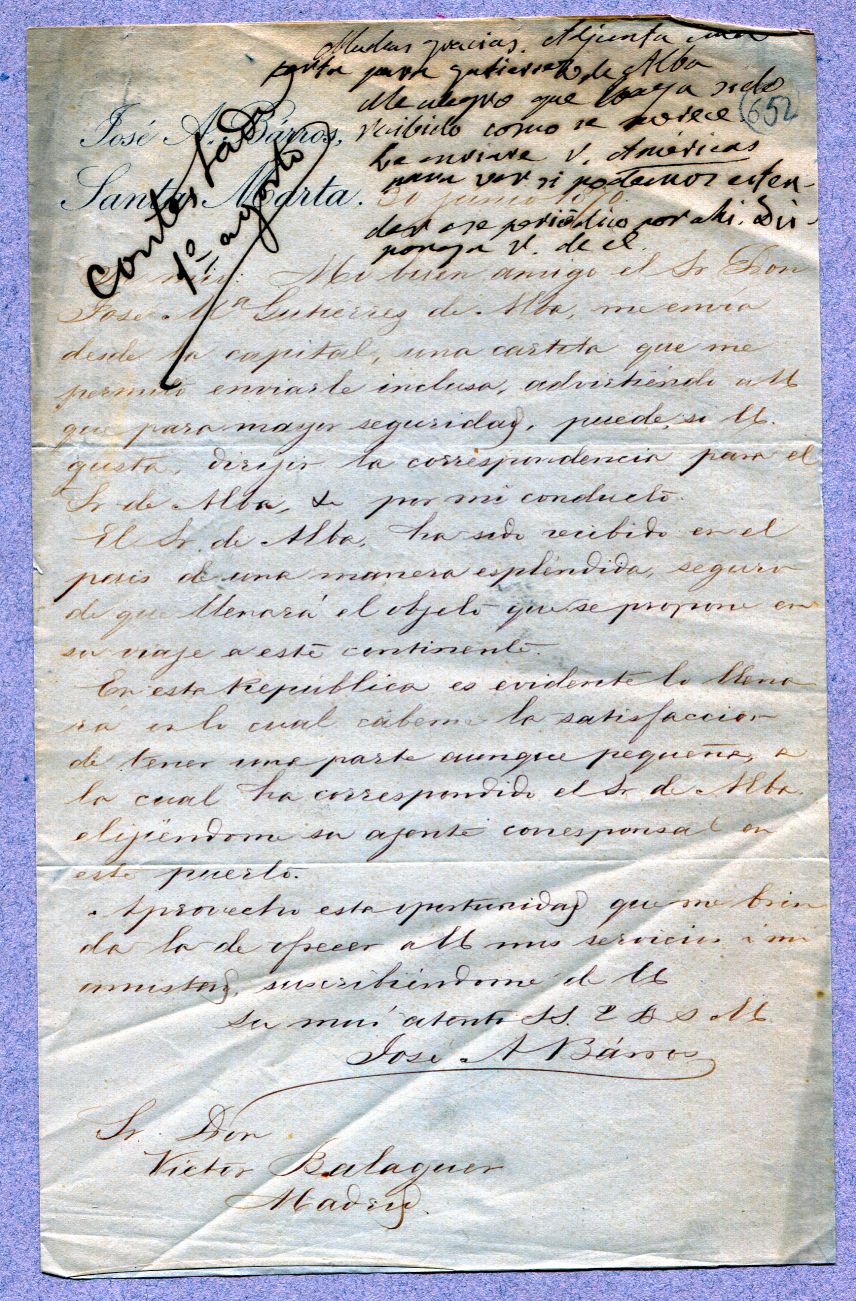 Muchas gracias. Adjunta una
carta para Gutierrez de Alba
Me alegro que haya sido
recibido como se merece
Le enviare V. Américas
para ver si podemos esten-
der ese periódico por ahi. Dis-
ponga V. de el.
652
contestada
1º agosto
José A. Bárros,
Santa Marta.
30 junio 1870.
Mi buen amigo el Sr Don
José Mª Gutiérrez de Alba, me envía
desde la capital, una cartita que me
permito enviarle inclusa, advirtiéndo a U
que para mayor seguridad, puede, si U.
gusta, dirijir la correspondencia para el
Sr de Alba, por mi conducto.
El Sr. de Alba, ha sido recibido en el
pais de una manera espléndida, seguro
de que llenará el objeto que se propone en
su viaje a este continente.
En esta República es evidente lo llena
rá en lo cual cábeme la satisfaccion
de tener una parte aunque pequeña, a
la cual ha correspondido el Sr. de Alba
elijiéndome su ajente corresponsal en
este puerto.
Aprovecho esta oportunidad que me brin
da la de ofrecer a U mis servicios i mi
amistad, suscribiéndome de U
su mui atento SS. Q B S M
José A Bárros
Sr. Don
Victor Balaguer
Madrid.